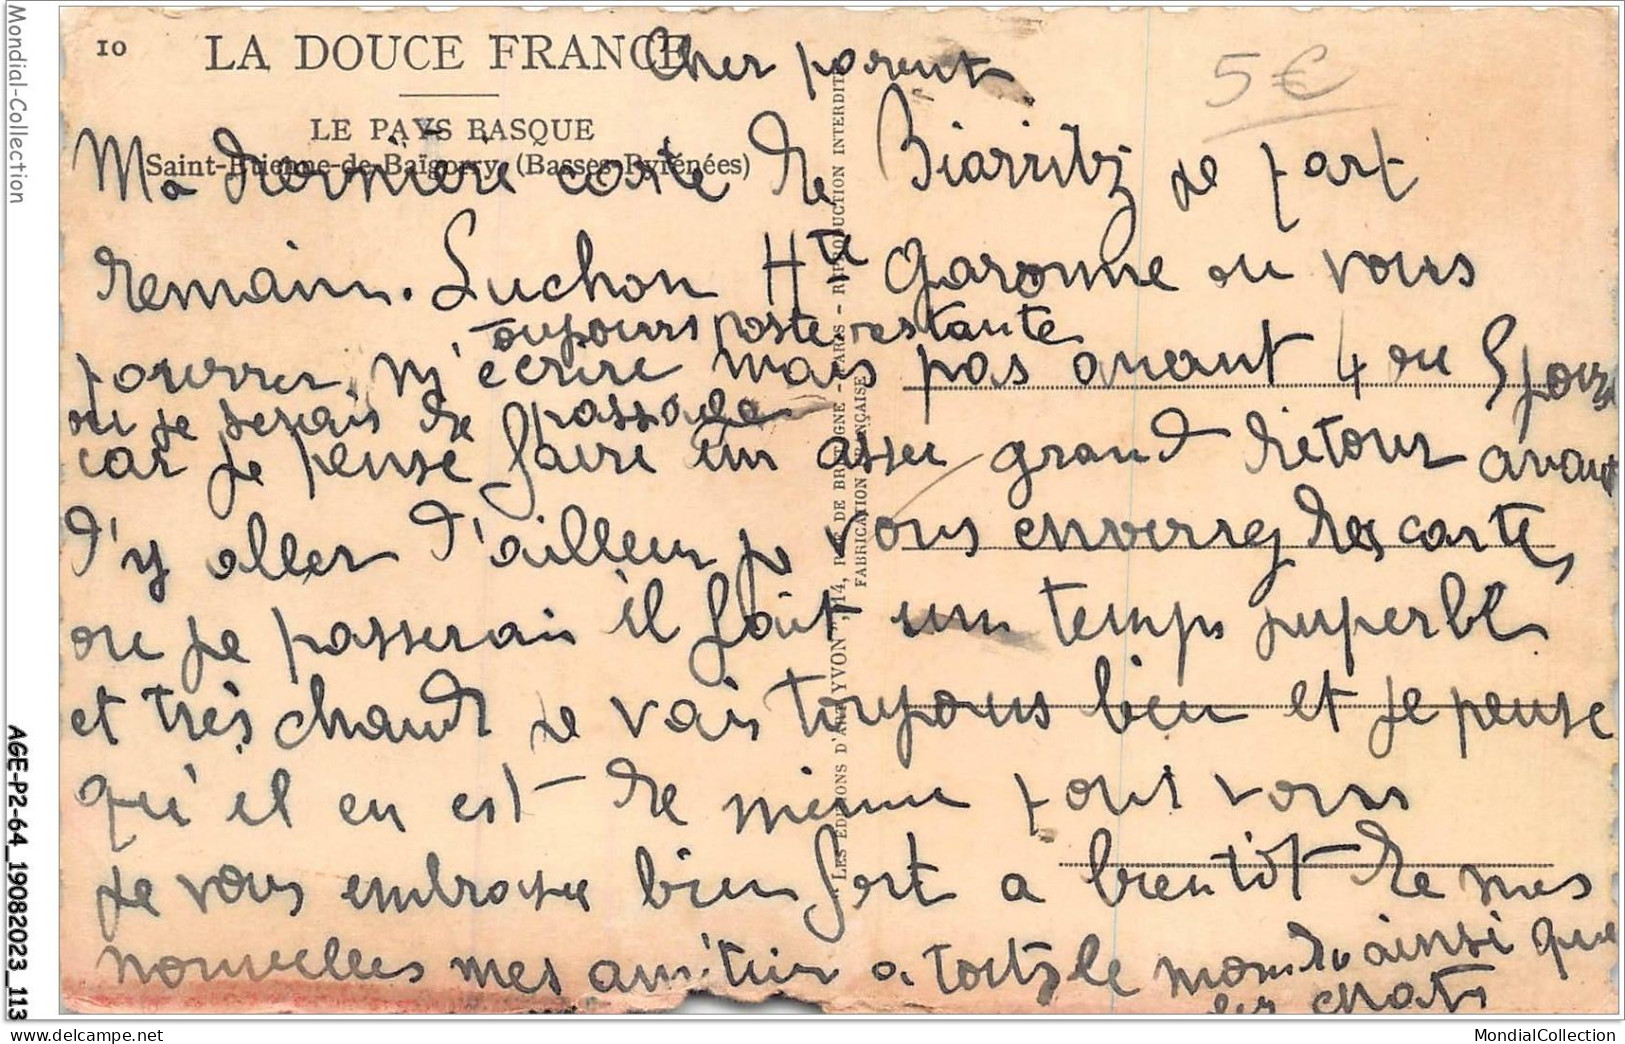 Mondial-Collection
10
LA DOUCE FRANCE
LE PAYS BASQUE
Saint-Etienne-de-Baïgorry (Basses-Pyrénées)
5€
Cher parent
Ma dernière carte de Biarritz je part
demain. Luchon Hte Garonne ou vous
toujours poste restante
pourrez m'écrire mais pas avant 4 ou 5 jours
ou je serais de passage
car je pense faire un assez grand détour avant
d'y aller d'ailleur je vous enverrez des cartes
ou je passerais il fait un temps superbe
et très chaud je vais toujours bien et je pense
qu'il en est de même pour vous
je vous embrasse bien fort a bientôt de mes
nouvelles mes amitier a tout le monde ainsi que
les chats
"LES ÉDITIONS D'ART YVON", 14, RUE DE BRETAGNE - PARIS - REPRODUCTION INTERDITE
FABRICATION FRANÇAISE
AGE-P2-64_19082023_113
MondialCollection